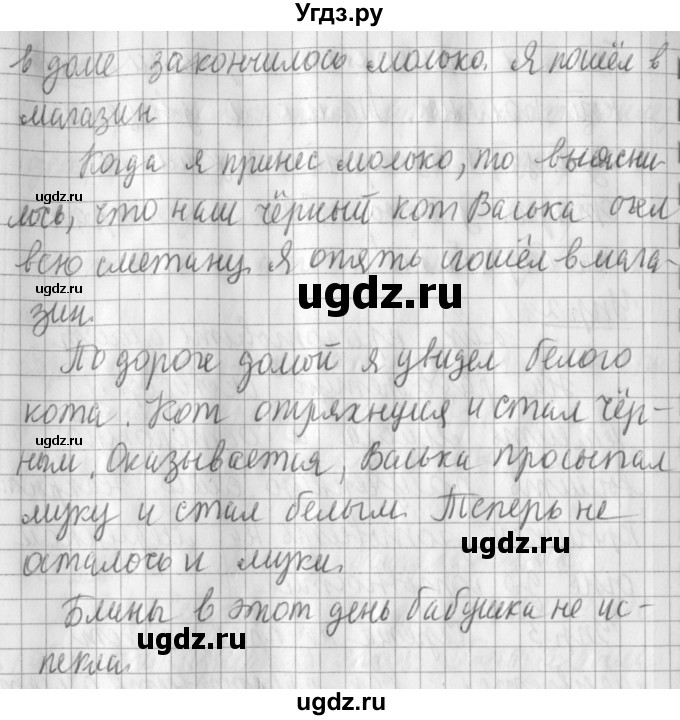 Угдз.ру
в доме закончилось молоко. Я пошёл в
магазин
Когда я принес молоко, то выясни-
лось, что наш чёрный кот Васька съел
всю сметану. Я опять пошёл в мага-
зин.
По дороге домой я увидел белого
кота. Кот отряхнулся и стал чёр-
ным. Оказывается, Васька просыпал
муку и стал белым. Теперь не
осталось и муки.
Блины в этот день бабушка не ис-
пекла.
ugdz.ru
ugdz.ru
ugdz.ru
ugdz.ru
ugdz.ru
ugdz.ru
ugdz.ru
ugdz.ru